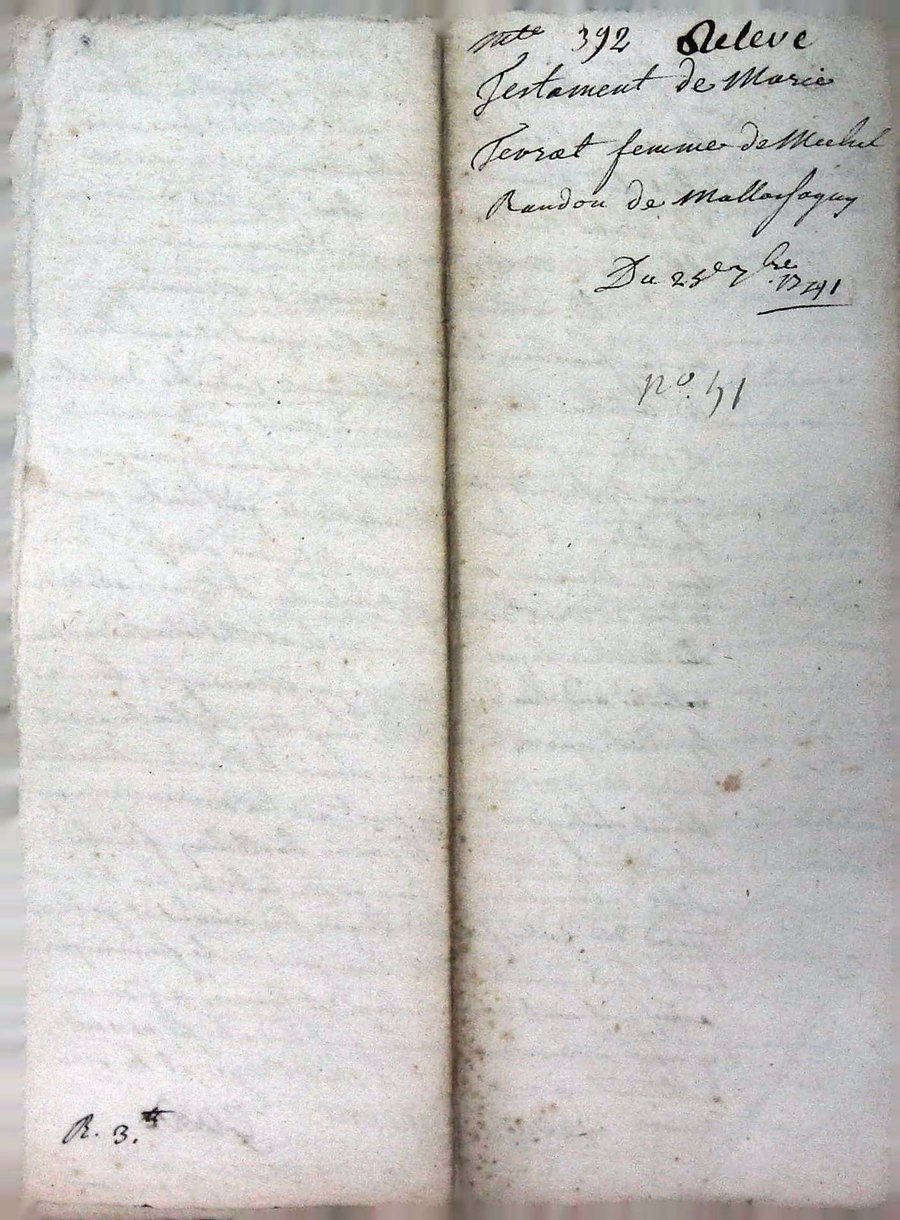 392 Releve
Testament de Marie
Tevrat femme de Michel
Randon de Mallossagny
Du 25e 7bre 1741
no. 41
R. 3.tt